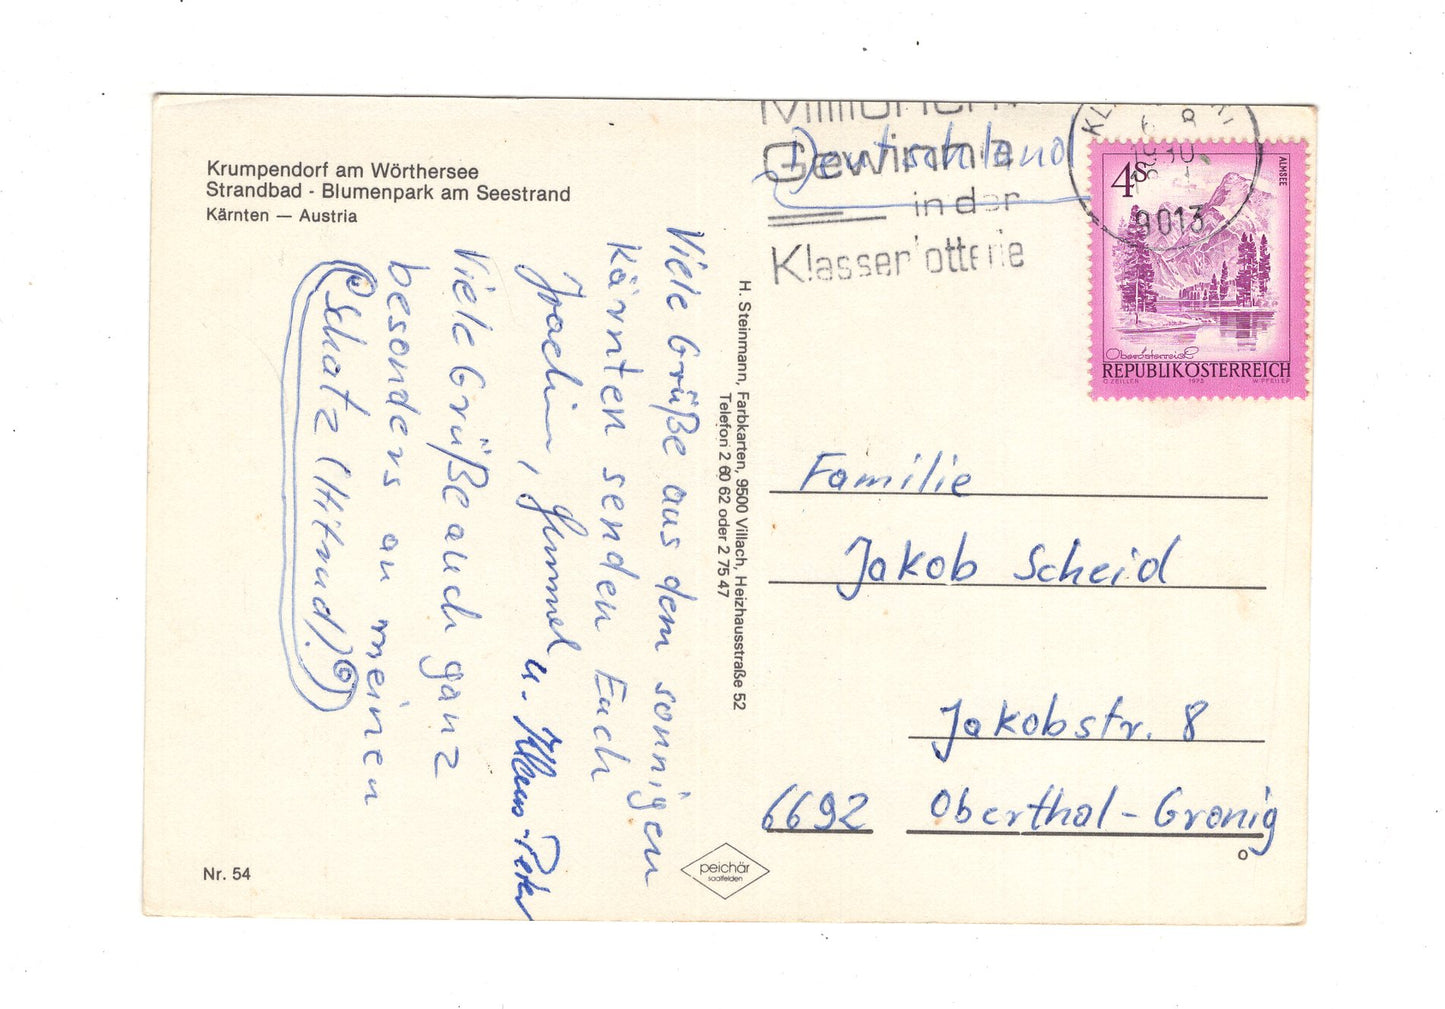 Krumpendorf am Wörthersee
Strandbad - Blumenpark am Seestrand
Kärnten — Austria
Viele Grüße aus dem sonnigen
Kärnten senden Euch
Joachim, u. Klaus-Peter
Viele Grüße auch ganz
besonders an meinen
Schatz
Nr. 54
H. Steinmann, Farbkarten, 9500 Villach, Heizhausstraße 52
Telefon 2 60 62 oder 2 75 47
peichär
saalfelden
Millionen
Gewinne
in der
Klassenlotterie
Deutschland
9013
4S
ALMSEE
Oberösterreich
REPUBLIK ÖSTERREICH
O. ZEILLER 1973 W. PFEILER
Familie
Jakob Scheid
Jakobstr. 8
6692 Oberthal-Gronig